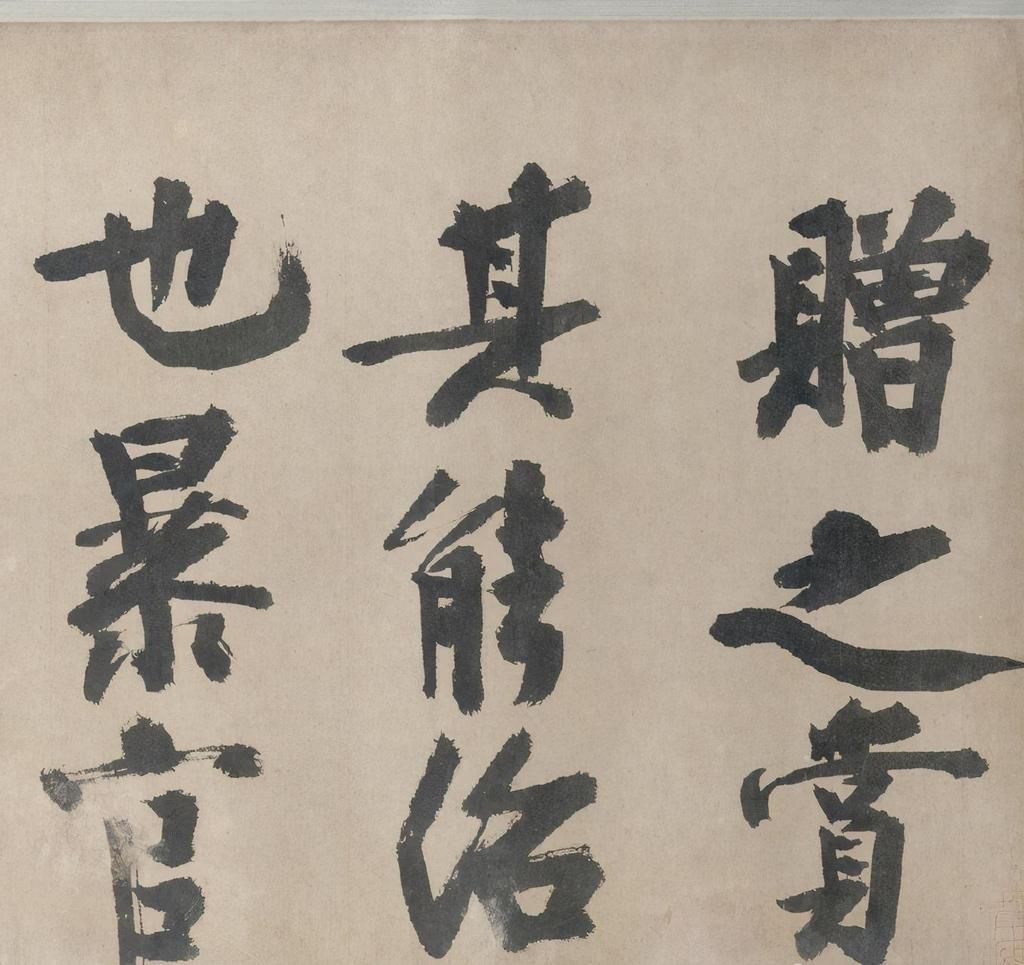 贈之賞
其能治
也暴官